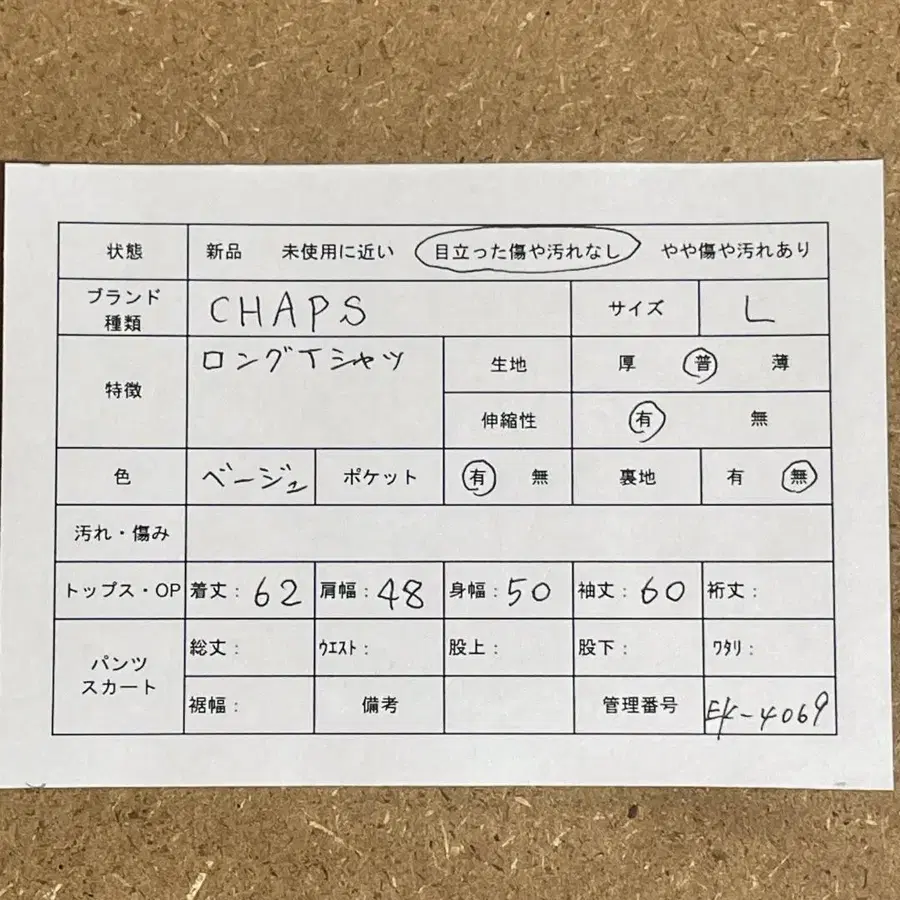 状態 新品 未使用に近い 目立った傷や汚れなし やや傷や汚れあり
ブランド
種類 CHAPS サイズ L
特徴 ロングTシャツ 生地 厚 普 薄
伸縮性 有 無
色 ベージュ ポケット 有 無 裏地 有 無
汚れ・傷み
トップス・OP 着丈：62 肩幅：48 身幅：50 袖丈：60 裄丈：
パンツ
スカート 総丈： ウエスト： 股上： 股下： ワタリ：
裾幅： 備考 管理番号 EK-4069